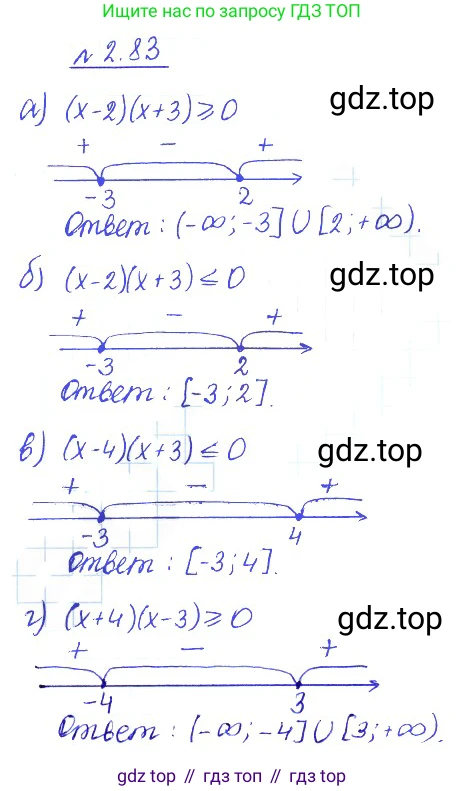 Ищите нас по запросу ГДЗ ТОП
№ 2.83
а) (x-2)(x+3)≥0
gdz.top
+ − +
-3 2
Ответ: (-∞;-3]∪[2;+∞).
б) (x-2)(x+3)≤0
gdz.top
+ − +
-3 2
Ответ: [-3;2].
в) (x-4)(x+3)≤0
gdz.top
+ − +
-3 4
Ответ: [-3;4].
г) (x+4)(x-3)≥0
gdz.top
+ − +
-4 3
Ответ: (-∞;-4]∪[3;+∞).
gdz top // гдз топ // гдз top